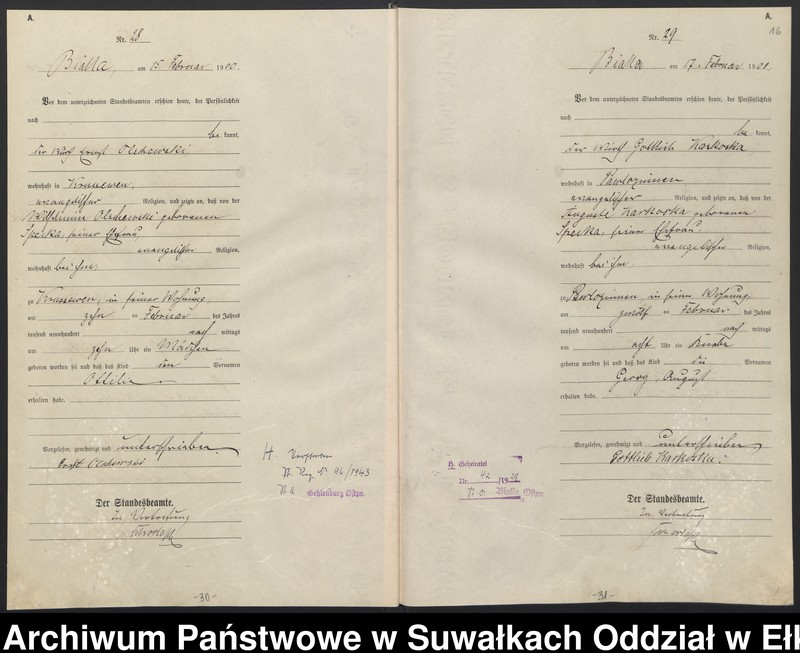 A.
Nr. 28
Bialla, am 15 Februar 1900.
Vor dem unterzeichneten Standesbeamten erschien heute, der Persönlichkeit
nach
be kannt,
der Wirth Ernst Olschewski,
wohnhaft in Krussewen,
evangelischer Religion, und zeigte an, daß von der
Wilhelmine Olschewski geborenen
Speika, seiner Ehefrau
evangelischer Religion,
wohnhaft bei ihm,
zu Krussewen, in seiner Wohnung,
am zehn ten Februar des Jahres
tausend neunhundert nach mittags
um zehn Uhr ein Mädchen
geboren worden sei und daß das Kind den Vornamen
Ottilie
erhalten habe.
Vorgelesen, genehmigt und unterschrieben
Ernst
Der Standesbeamte.
In Vertretung
H. Verstorben
St. Reg. Nr. 96/1943
St. A. Gehlenburg Ostpr.
-30-
A.
16
Nr. 29
Bialla am 17. Februar 1900.
Vor dem unterzeichneten Standesbeamten erschien heute, der Persönlichkeit
nach
be kannt,
der Wirth Gottlieb Karkoska,
wohnhaft in Pawlozinnen
evangelischer Religion, und zeigte an, daß von der
Auguste Karkoska geborenen
Speika, seiner Ehefrau
evangelischer Religion,
wohnhaft bei ihm
zu Pawlozinnen, in seiner Wohnung
am zwölf ten Februar des Jahres
tausend neunhundert nach mittags
um acht Uhr ein Knabe
geboren worden sei und daß das Kind die Vornamen
Georg, August
erhalten habe.
Vorgelesen, genehmigt und unterschrieben
Gottlieb Karkoska.
H. Geheiratet
Nr. 42 /1929
St. A. Bialla Ostpr.
Der Standesbeamte.
In Vertretung
-31-
Archiwum Państwowe w Suwałkach Oddział w Ełk